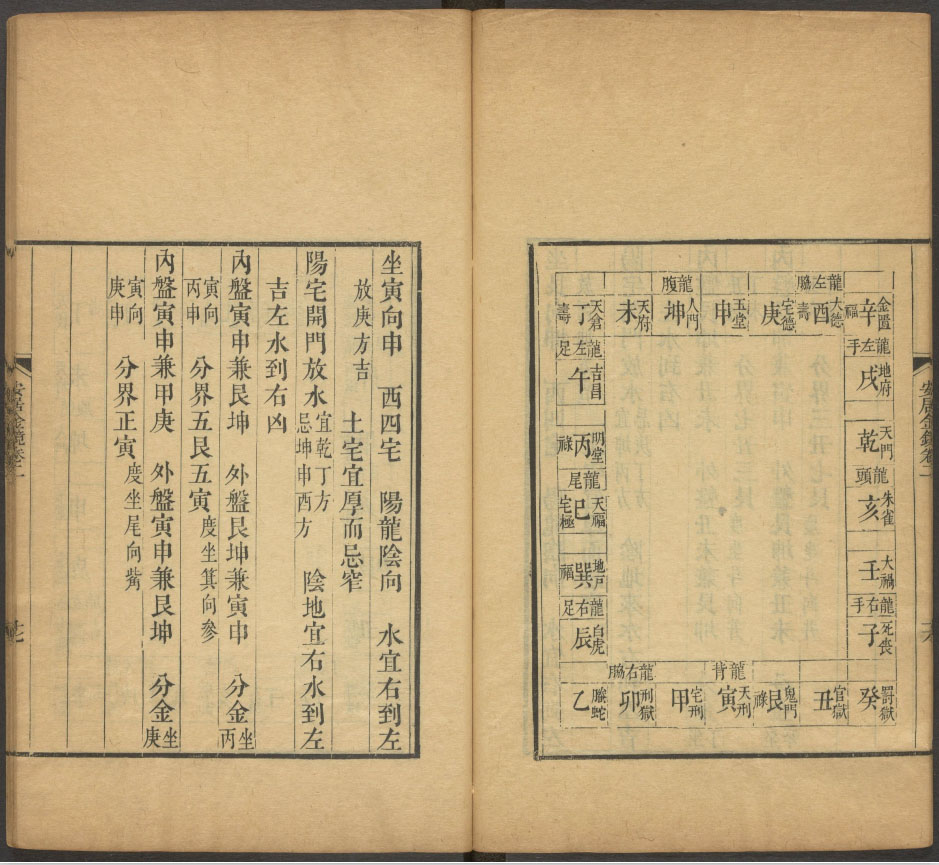 安居金鏡卷二
龍左脇
龍腹
金匱 辛 福
大德 酉 壽
宅德 庚
玉堂 申
人門 坤
天府 未
天倉 丁 壽
龍左手
地府 戌
天門 乾
龍頭
朱雀 亥
大禍 壬
龍右手
死喪 子
龍左足
吉昌 午
明堂 丙 祿
龍尾
天福 巳 宅極
地戶 巽 福
龍右足
白虎 辰
龍背
龍右脇
罰獄 癸
官獄 丑
鬼門 艮 祿
天刑 寅
宅刑 甲
刑獄 卯
螣蛇 乙
坐寅向申 西四宅 陽龍陰向 水宜右到左
放庚方吉 土宅宜厚而忌窄
陽宅開門放水 宜乾丁方 忌坤申酉方 陰地宜右水到左
吉左水到右凶
內盤寅申兼艮坤 外盤艮坤兼寅申 分金 坐丙
寅向丙申 分界五艮五寅 度坐箕向參
內盤寅申兼甲庚 外盤寅申兼艮坤 分金 坐庚
寅向庚申 分界正寅 度坐尾向觜